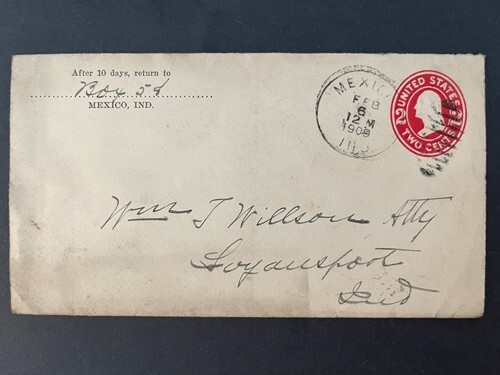 After 10 days, return to
Box 58
MEXICO, IND.
MEXICO
FEB
6
12 M
1909
IND.
UNITED STATES
2
2
TWO CENTS
Wm T Willson Atty
Logansport
Ind